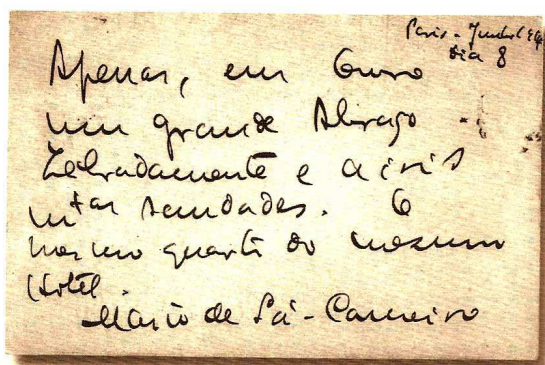 Paris - Junho
dia 8
Apenas, em Ouro
um grande Abraço
Zebradamente e a iris
mtas saudades. O
mesmo quarto do mesmo
Hotel.
Mario de Sá-Carneiro